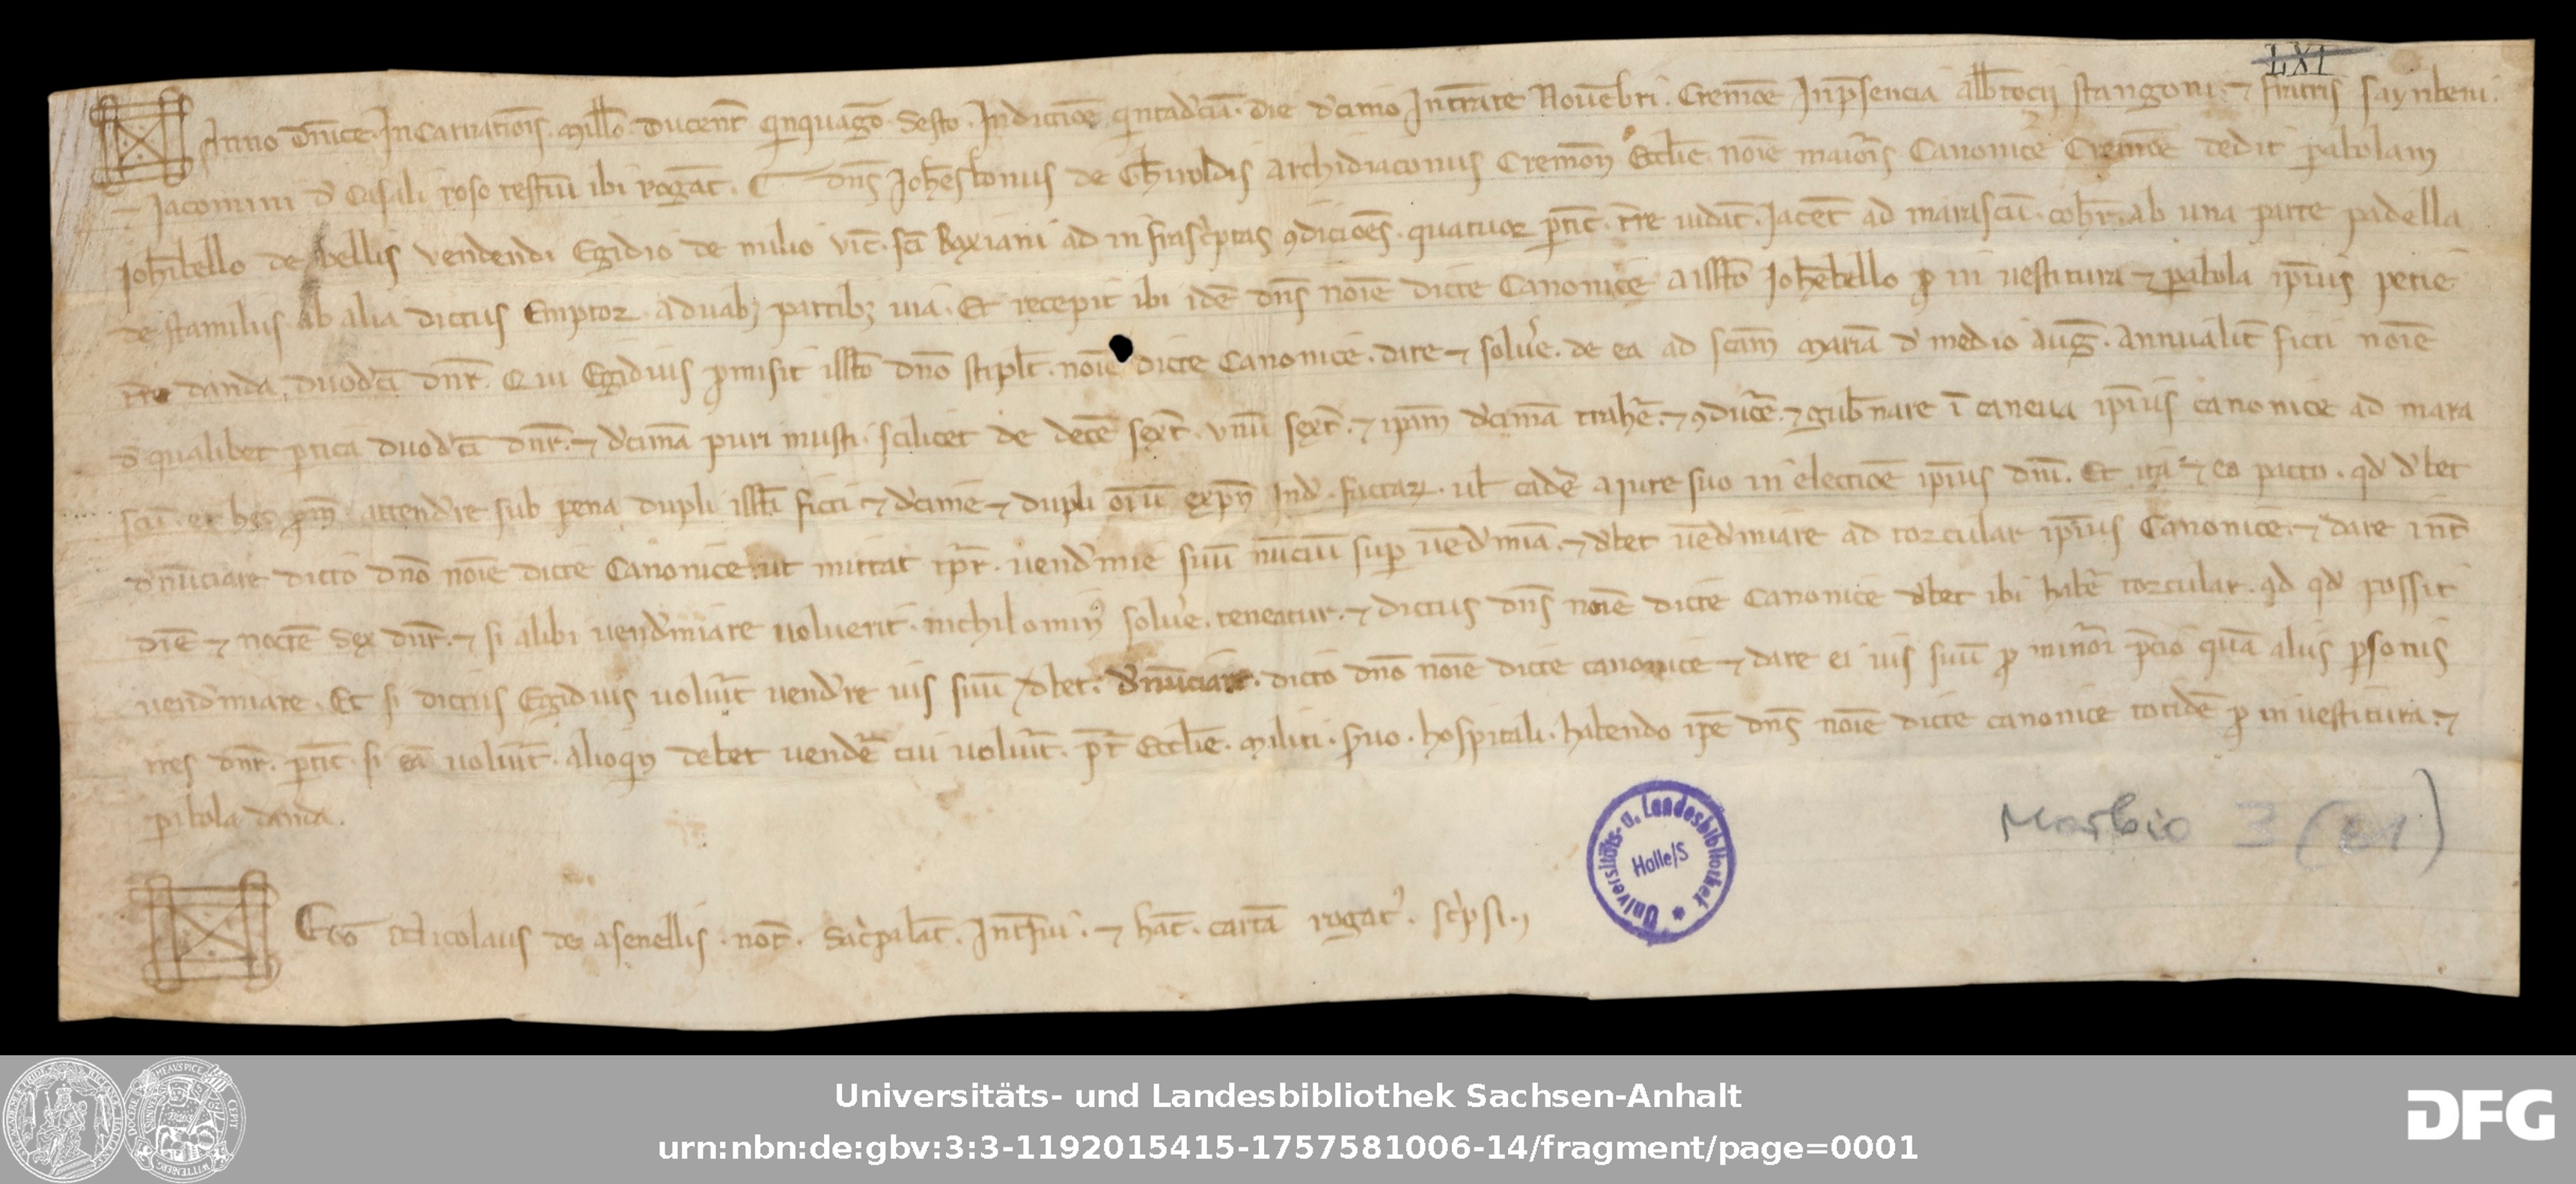 LXI
Anno dn̄ice. Incarnatiōis. mill̄o. Ducent̄ q̇nquag̅o. Sesto. Indictiōe q̇ntad̓ciā. die d̓cimo Int̅rāte Nouēbri. Cremōe Inp̅sencia alb̅tocij stangoni. ⁊ fratris
⁊ Iacomini d̓ Casali roso testiū ibi rogat̄. dn̄s Ioh̅esbonus de Ghiroldis archidiaconus Cremon̄ Eccl̅ie noīe maioris Canonice Cremōe dedit parabolam
Ioh̅ibello de bellis vendendi Egidio de milio vic̄. sc̄i ad infrasc̓ptas ꝯdiciōes. quatuor ꝑtic̄. tr̄re uidat̄. Iacēt ad marascū. coher̄. ab una parte padella
de stamilus ab alia dictus Emptor. aduabꝫ partibꝫ uia. Et recepit ibi idē dn̄s noīe dicte Canonice aiſſto Ioh̅ebello ꝓ inuestitura ⁊ parabola ip̄ius petie
tr̄re danda, duod̓cī dn̄r. Qui Egidius ꝓmisit iſſto dn̄o stipl̄t. noīe dicte Canonice. dare ⁊ solue̓. de ea ad sc̄am mariā d̓ medio aug̅. annualit̄ ficti noīe
d̓ qualibet ꝑtica duod̓cī dn̄r. ⁊ d̓cimā puri musti. scilicet de decē sext̄. unū sext̄. ⁊ ip̄am d̓cimā trahe̓. ⁊ ꝯduce̓. ⁊ gub̅nare ī caneua ip̄ius canonice ad mara
scū. et hec ꝓm̄. attend̓re sub pena dupli iſſti ficti ⁊ d̓cime ⁊ dupli oīu exp̄n Ind̓. factaꝝ. ul̄ cadē̓ ajure suo in electiōe ip̄ius dn̄i. Et ita ⁊ eo pacto. qd̓ d̓bet
d̓nūciare dicto dn̄o noīe dicte Canonice ut mittat tp̄r. uend̓mie suū nūciū suꝑ uēd̓miā. ⁊ d̓bet uēd̓miare ad torcular ip̄ius Canonice. ⁊ dare int̄
diē ⁊ noctē sex dn̄r. ⁊ si alibi uend̓miare uoluerit. nichilominꝰ solue̓. teneatur. ⁊ dictus dn̄s noīe dicte Canonice d̓bet ibi habe̓ torcular. qd̓ possit
uend̓miare. Et si dictus Egidius uolu̓it uend̓re ius suū d̓bet. d̓nūciare. dicto dn̄o noīe dicte canonice ⁊ dare ei ius suū ꝓ minori p̄cio quā aliis ꝑsonis
tres dn̄r. ꝑtic̄. si eā uolu̓it. alioq̇n debet uende̓ cui uolu̓it. p̄t̄ Eccl̅ie. militi. s̓uo. hospitali. habendo ip̄e dn̄s noīe dicte canonice totidē ꝓ inuestitura. ⁊
parabola danda.
Ego Nicolaus de asenellis. not̄. Sac̓ palat̄. Int̄fui. ⁊ hāc. cartā rogatꝰ. sc̓psi.
Universitäts- u. Landesbibliothek
Halle/S
Morbio 3 (61)
Universitäts- und Landesbibliothek Sachsen-Anhalt
urn:nbn:de:gbv:3:3-1192015415-1757581006-14/fragment/page=0001
DFG